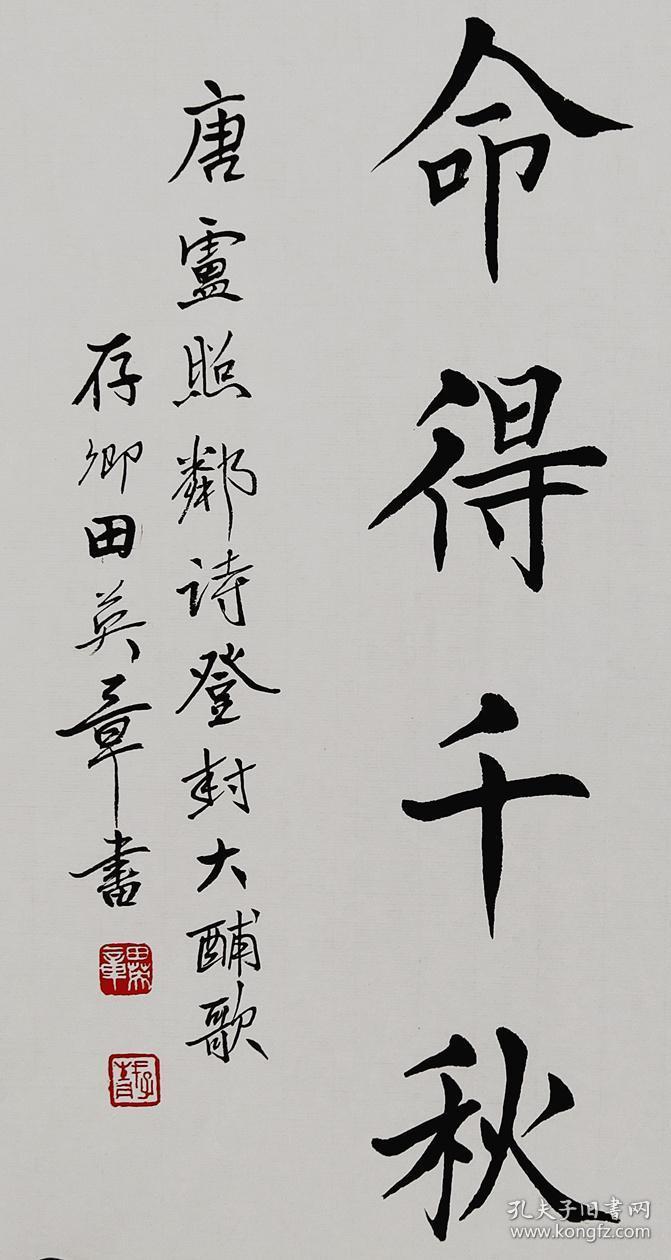 命得千秋
唐盧照鄰诗登封大酺歌
存卿田英章書
田英章
孔夫子旧書网
www.kongfz.com